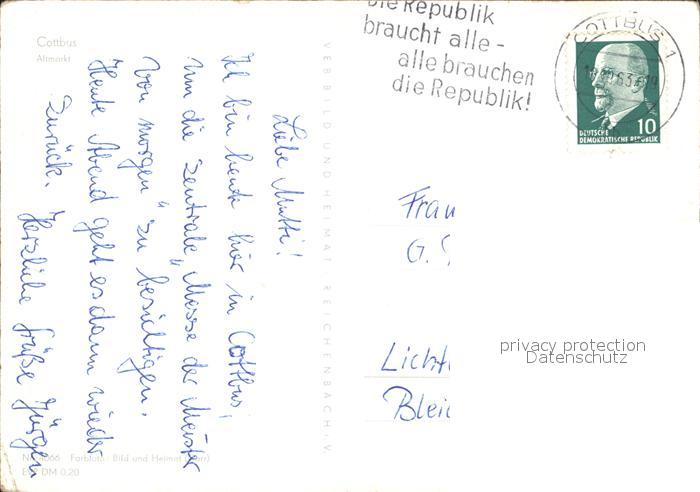 Cottbus
Altmarkt
Liebe Mutti!
Ich bin heute hier in Cottbus,
um die zentrale „Messe der Meister
von morgen" zu besichtigen.
Heute Abend geht es dann wieder
zurück. Herzliche Grüße Jürgen
VEB BILD UND HEIMAT REICHENBACH i. V.
Farbfoto: Bild und Heimat
EVP DM 0,20
Die Republik
braucht alle -
alle brauchen
die Republik!
COTTBUS 1
10
DEUTSCHE
DEMOKRATISCHE REPUBLIK
Frau
G.
Licht
Blei
privacy protection
Datenschutz